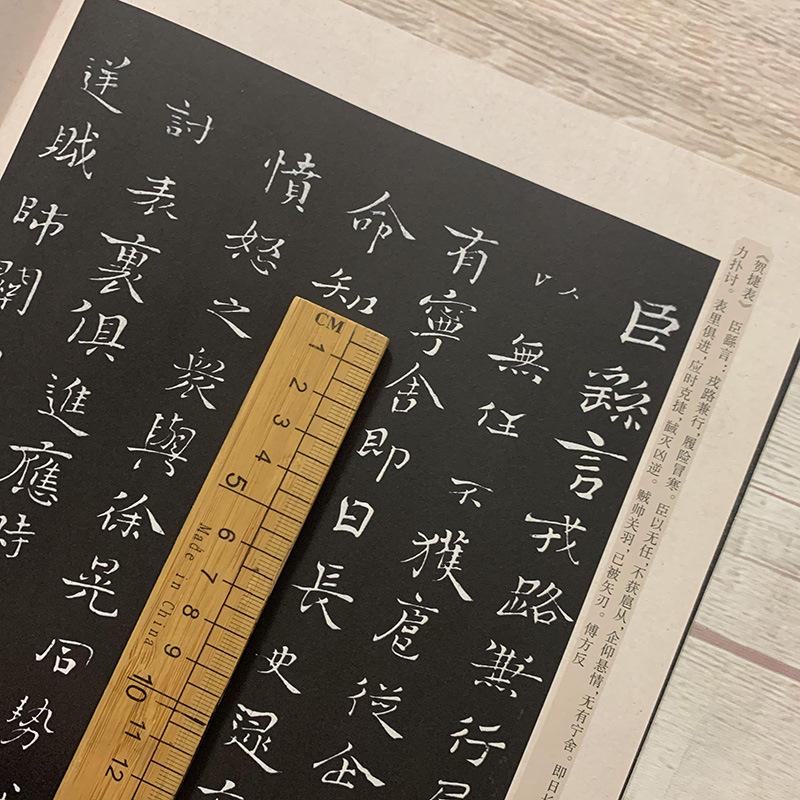 《贺捷表》 臣繇言：戎路兼行，履险冒寒。臣以无任，不获扈从，企仰悬情，无有宁舍。即日长
力扑讨。表里俱进，应时克捷，馘灭凶逆。贼帅关羽，已被矢刃。傅方反
臣繇言戎路兼行
以無任不獲扈從企
有寧舍即日長史逯
命知
憤怒之衆與徐晃同勢
討表裏俱進應時
逆賊帥關
CM
1 2 3 4 5 6 7 8 9 10 11 12
Made in China